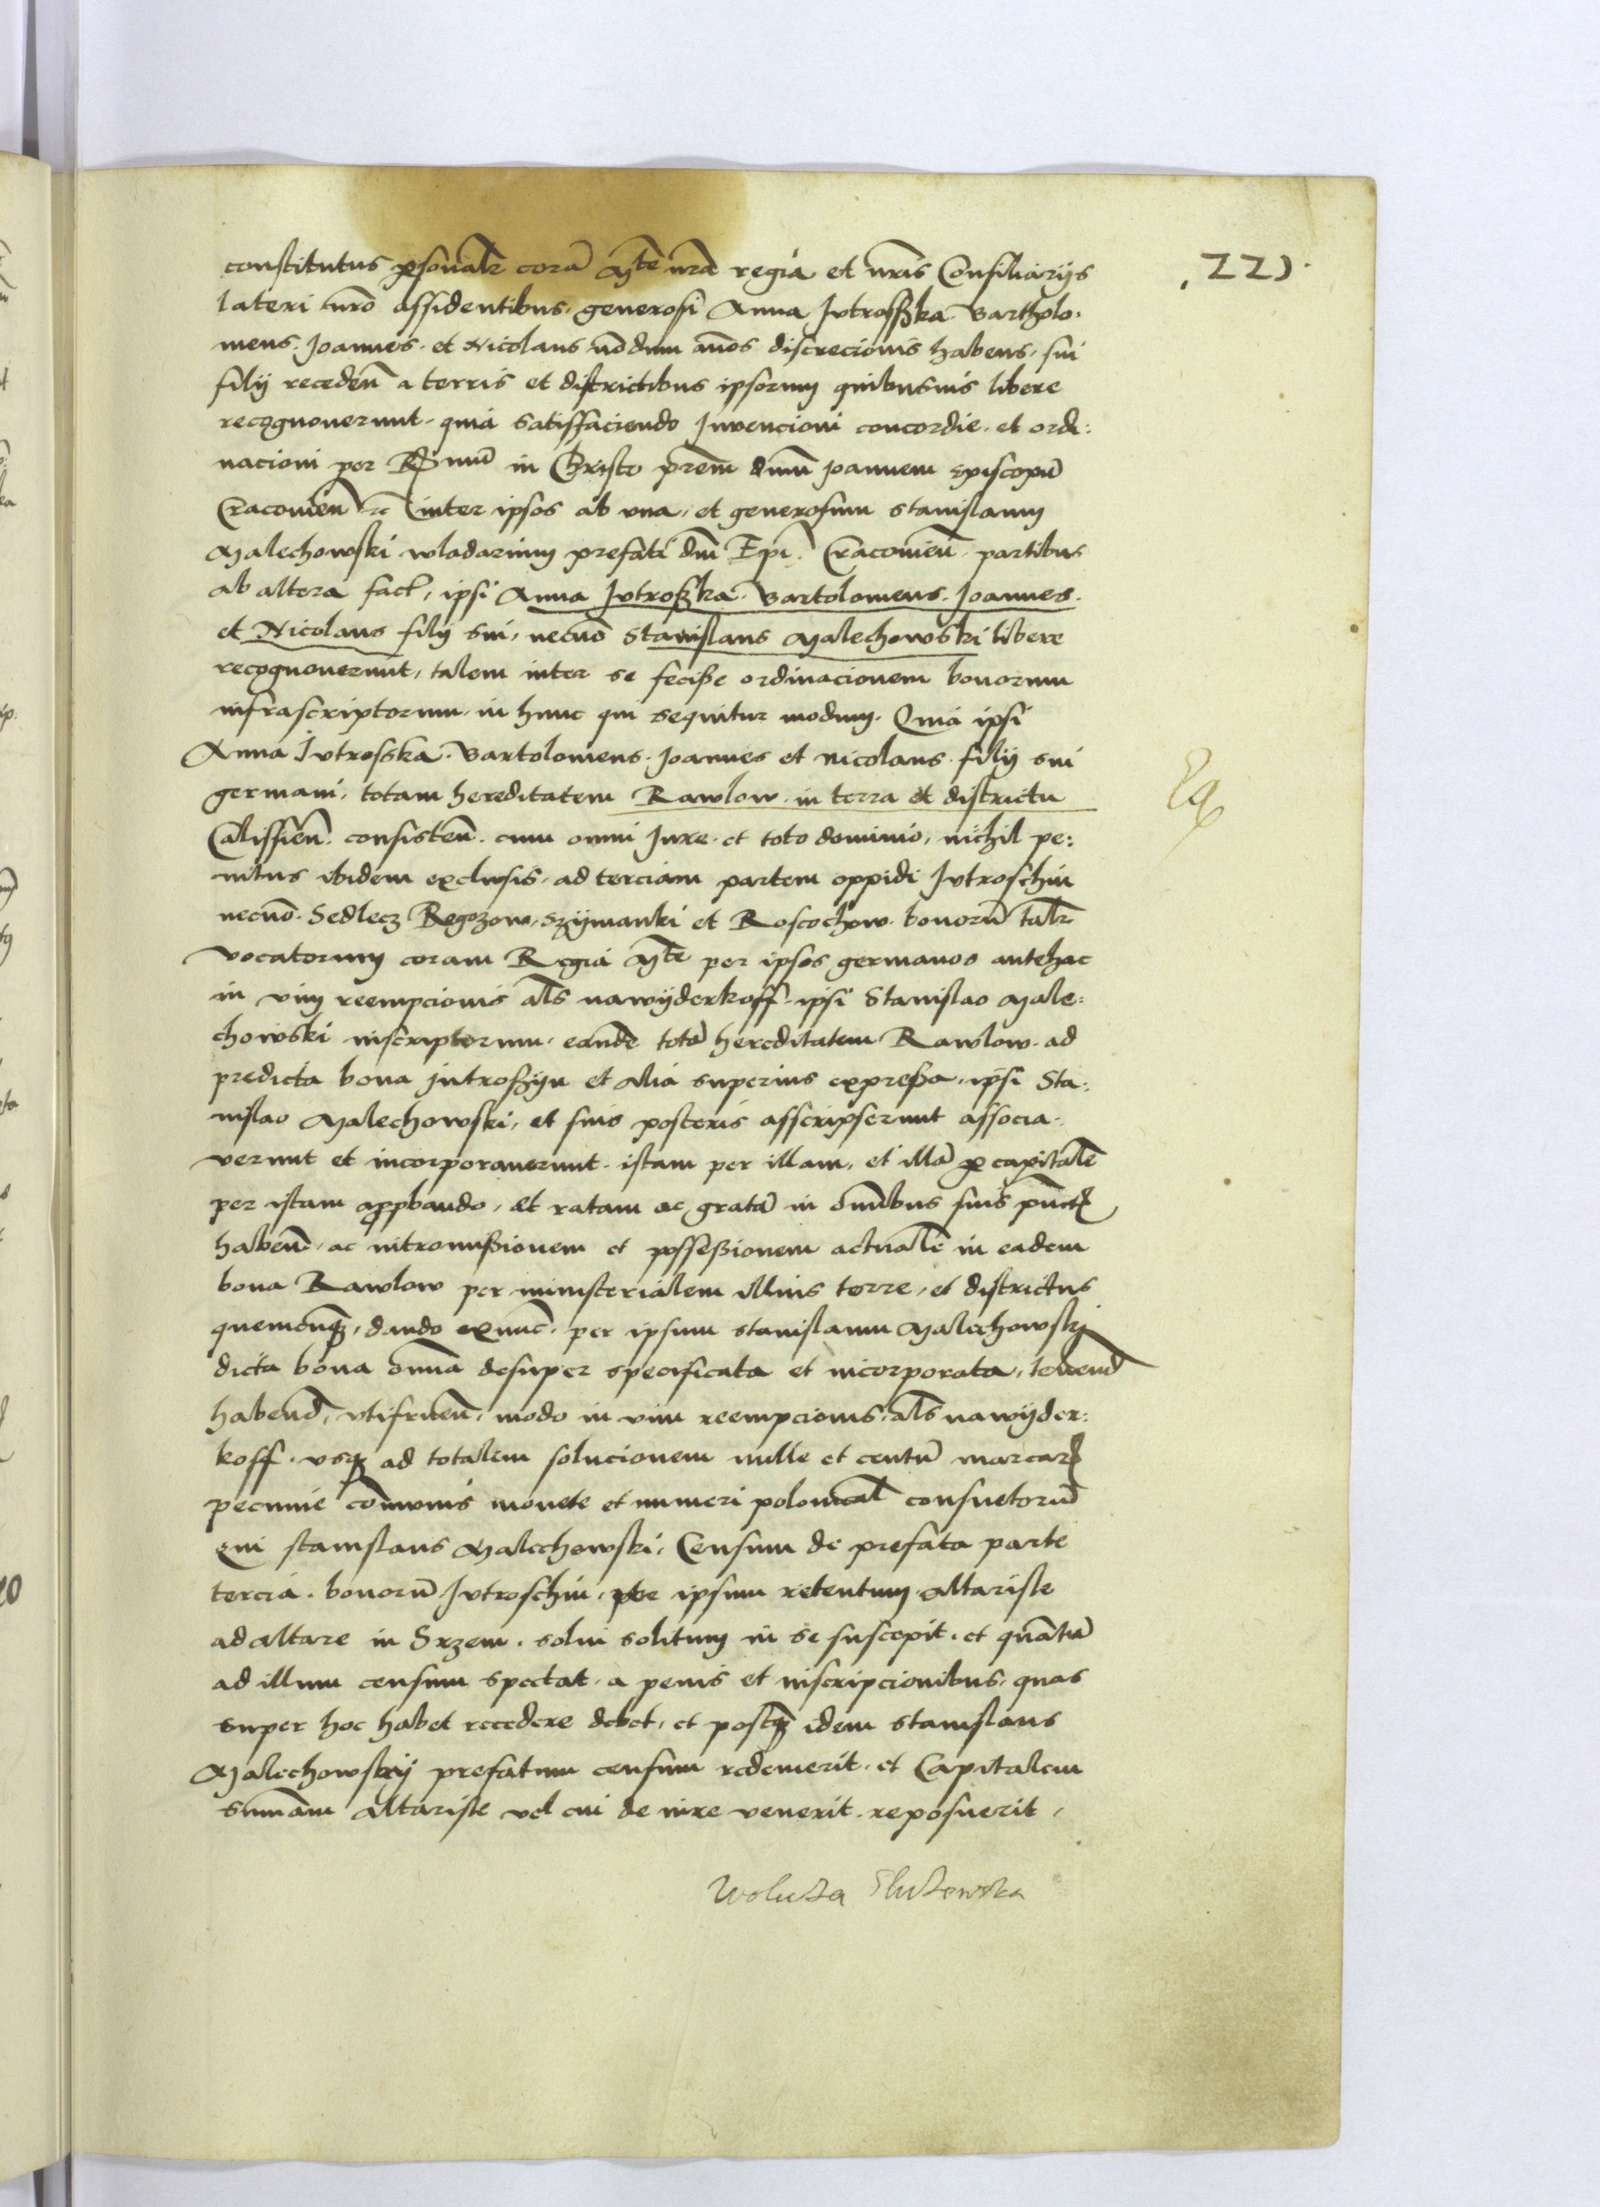 .225.
constitutus p̱sonalr corā Mte nr̄a regia et nr̄is Consiliarijs
lateri nr̄o assidentibus, generosi Anna Jvtrosska Bartholo:
meus. Joannes. et Nicolaus nōdum annos discrecionis habens, sui
filij recedeñ a terris et districtibus ipsorum quibusuis libere
recognouerunt. quia satisfaciendo Invencioni concordie. et ordi:
nacioni per Rdmū in Christo prēm dnūm Joannem Episcopū
Cracouień zc inter ipsos ab vna, et generosum Stanislaum
Malechowski wlodarium prefati dnī Epī. Cracouień. partibus
ab altera fact, ipsi Anna Jvtroßka. Bartolomeus. Joannes.
et Nicolaus filij sui, necnō Stanislaus Malechowski libere
recognouerunt, talem inter se feciße ordinacionem bonorum
infrascriptorum. in hunc qui sequitur modum. Quia ipsi
Anna Jvtroßka. Bartolomeus. Joannes et Nicolaus. filij sui
germani, totam hereditatem Rawlow. in terra et districtu
Calissień. consisteñ. cum omni Jure. et toto dominio, nichil pe:
nitus ibidem exclusis, ad terciam partem oppidi Jvtroschin
necnō. Sedlecz Rogozow, Szijmanki et Roscochow. bonorū talr
vocatorum coram Regia Mte per ipsos germanos antehac
in vim reempcionis als nawijderkoff. ipsi Stanislao Male:
chowski inscriptorum, eandē totā hereditatem Rawlow. ad
predicta bona Jutroßijn et alia superius expreßa, ipsi Sta:
nislao Malechowski, et suis posteris asscripserunt associa.
verunt et incorporauerunt. istam per illam, et illā p̱ capitalē
per istam approbando, Et ratam ac gratā in omībus suis pūct
habeñ, ac intromißionem et poßeßionem actualē in eadem
bona Rawlow per ministerialem illius terre, et districtus
quemcūqз, dando exnūc. per ipsum Stanislaum Malechowskj
dicta bona omīa desuper specificata et incorporata, tenend
habend, vtifrueñ, modo in vim reempcionis, als nawijder:
koff. vsqз ad totalem solucionem mille et centū marcar
pecunie cōmunis monete et numeri polonical consuetorū
Qui Stanislaus Malechowski, Censum de prefata parte
tercia. bonorū Jvtroschin, per ipsum retentum altariste
ad altare in Srzem. solui solitum in se suscepit. et quātū
ad illum censum spectat. a penis et inscripcionibus, quas
super hoc habet recedere debet, et postqз idem Stanislaus
Malechowskij prefatum censum redemerit. et Capitalem
summam altariste vel cui de iure venerit. reposuerit,